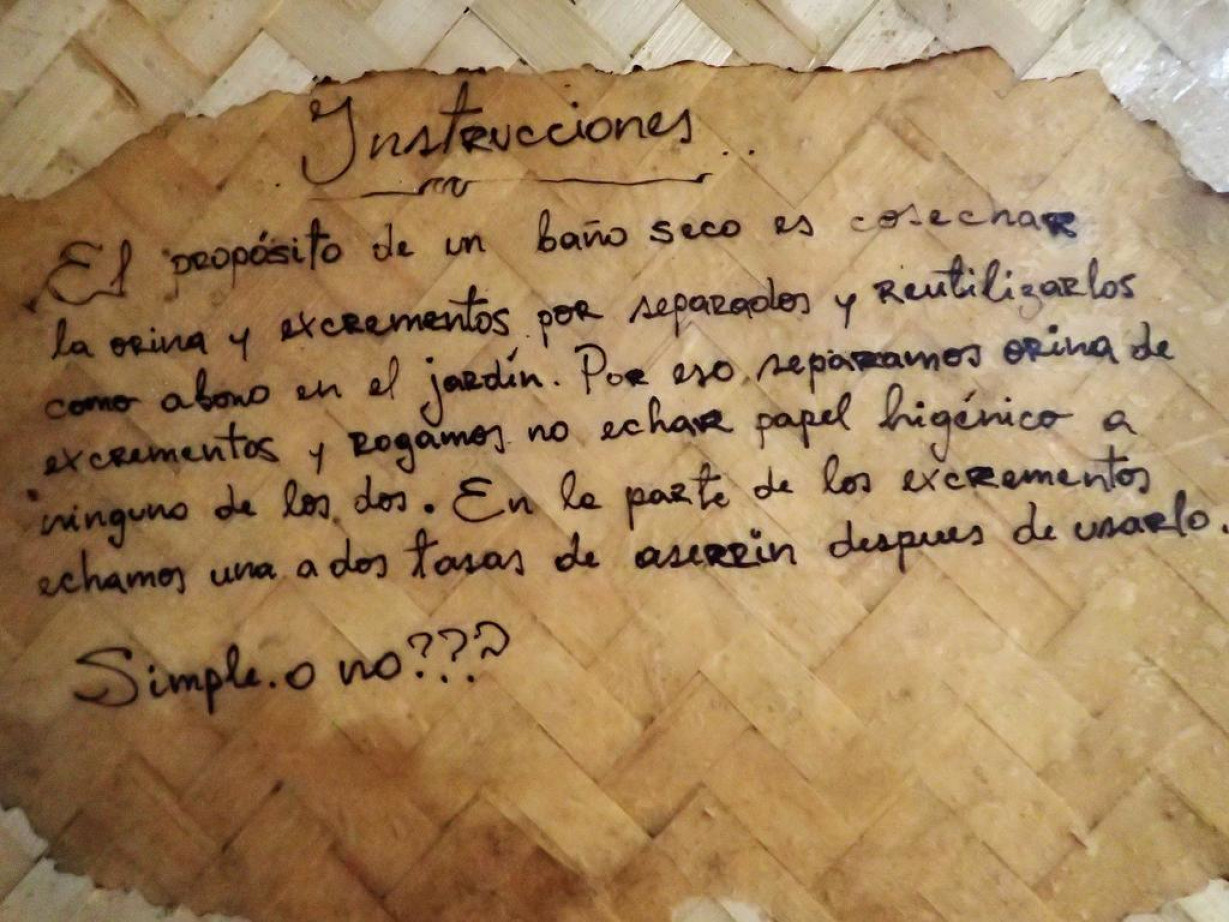 Instrucciones..
El propósito de un baño seco es cosechar
la orina y excrementos por separados y reutilizarlos
como abono en el jardín. Por eso separamos orina de
excrementos y rogamos no echar papel higénico a
ninguno de los dos. En la parte de los excrementos
echamos una a dos tasas de aserrin despues de usarlo.
Simple.o no???